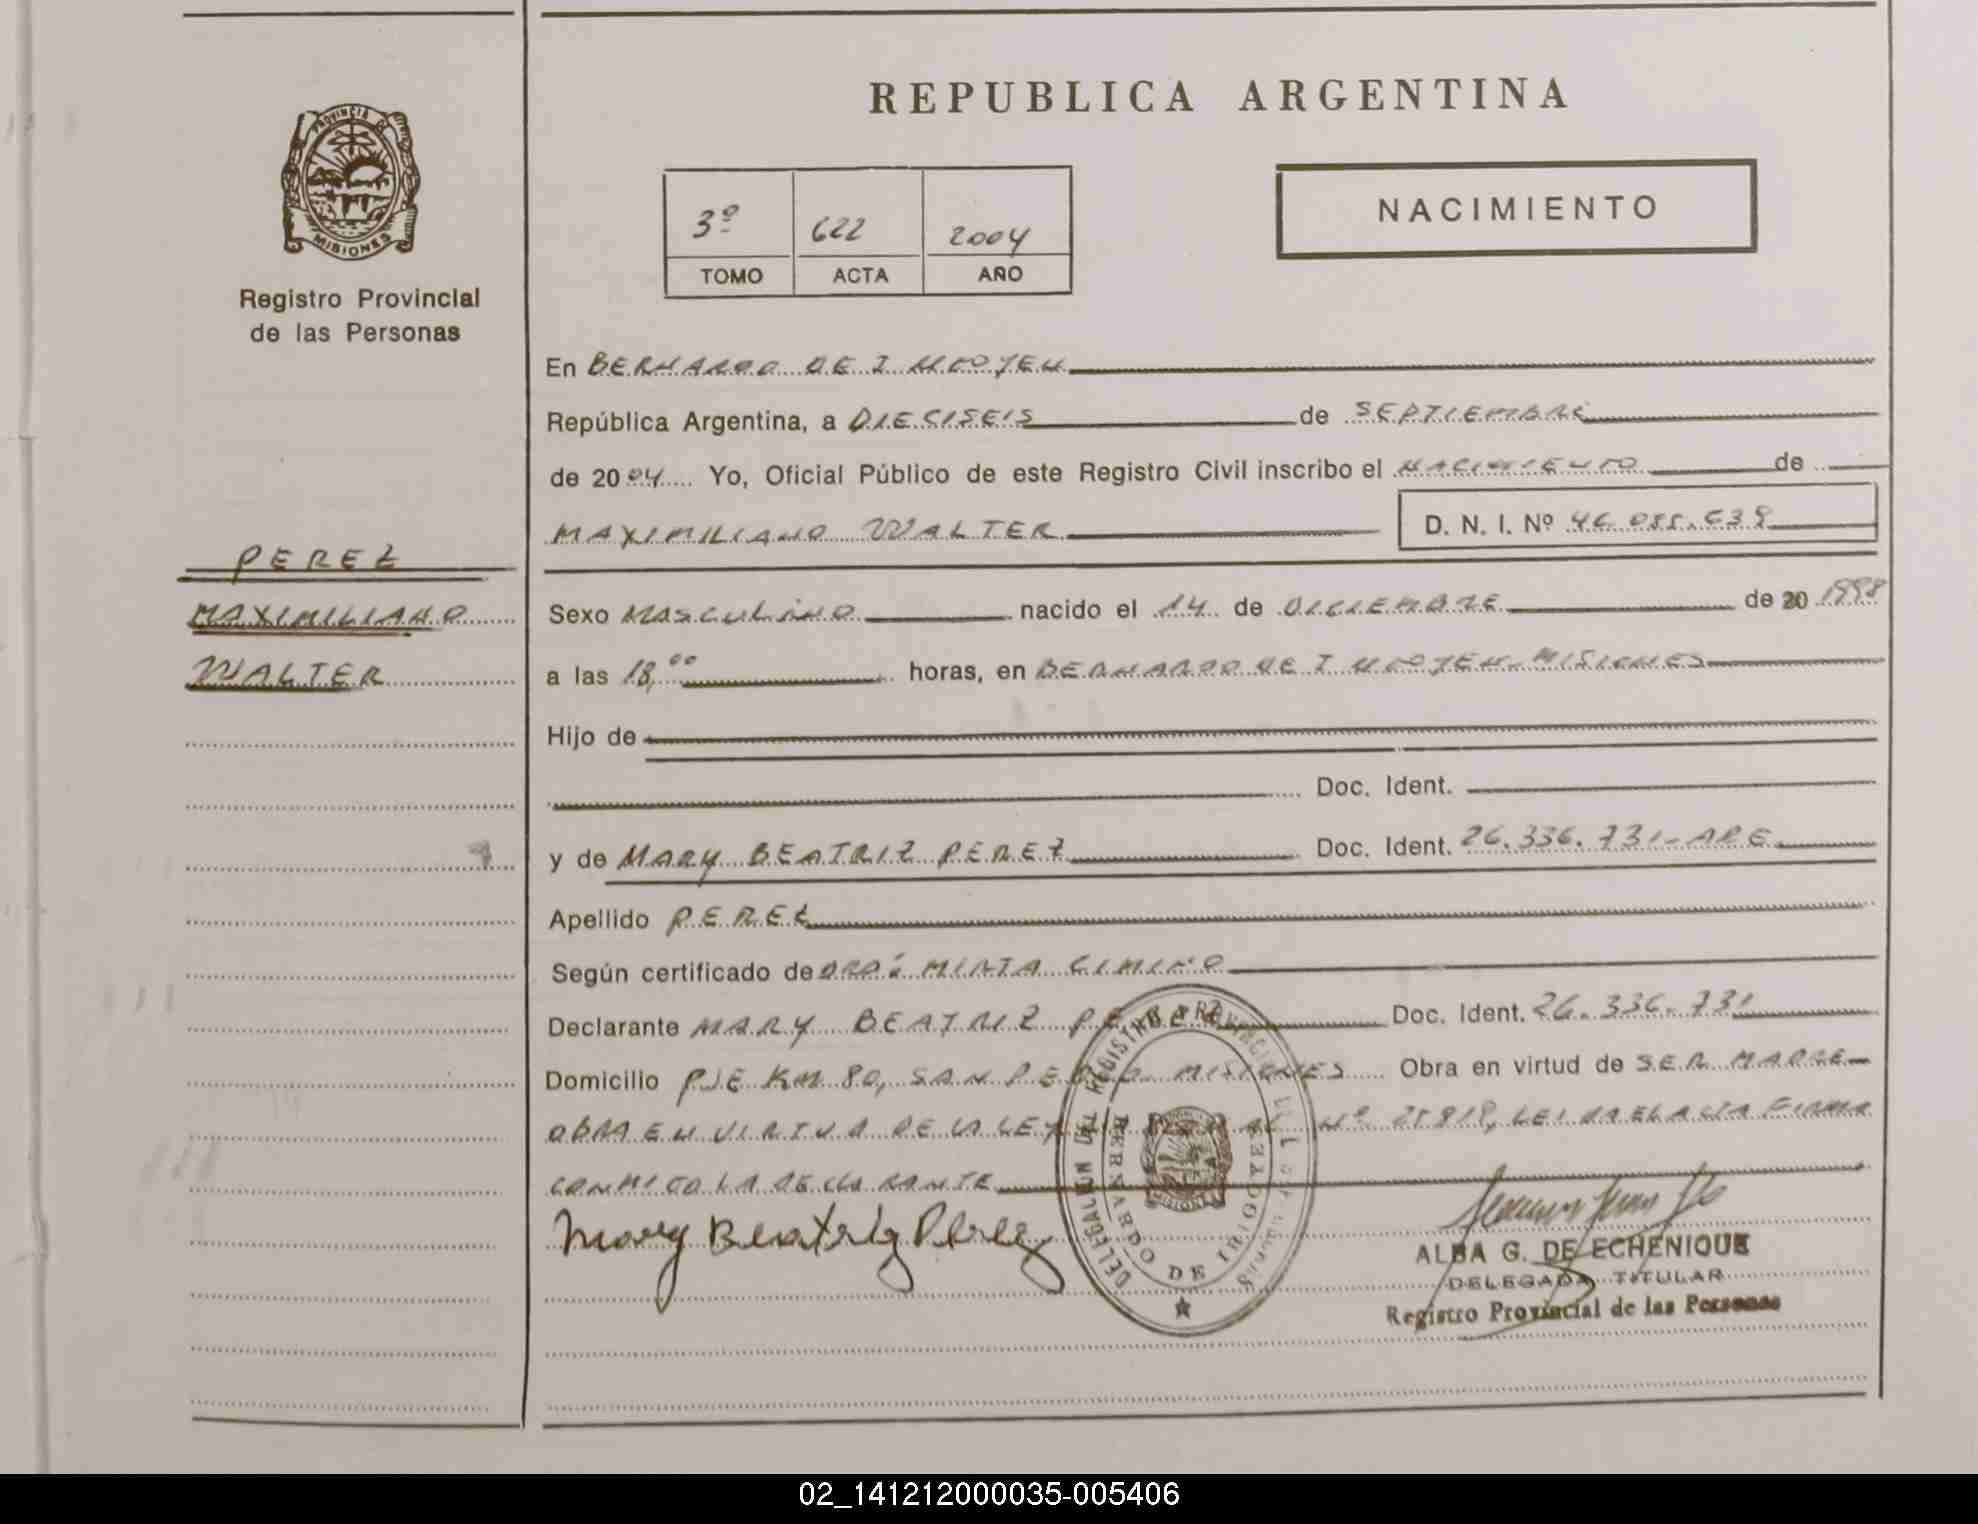 REPUBLICA ARGENTINA
PROVINCIA DE
MISIONES
Registro Provincial
de las Personas
3º 622 2004
TOMO ACTA AÑO
NACIMIENTO
En BERNARDO DE IRIGOYEN
República Argentina, a DIECISEIS de SEPTIEMBRE
de 2004 Yo, Oficial Público de este Registro Civil inscribo el NACIMIENTO de
MAXIMILIANO WALTER D. N. I. Nº
PEREZ
MAXIMILIANO
WALTER
Sexo MASCULINO nacido el 14 de DICIEMBRE de 20 1998
a las 18,00 horas, en BERNARDO DE IRIGOYEN-MISIONES
Hijo de
Doc. Ident.
y de MARY BEATRIZ PEREZ Doc. Ident. 26.336.731-
Apellido PEREZ
Según certificado de MIRTA CIMINO
Declarante MARY BEATRIZ PEREZ Doc. Ident. 26.336.731
Domicilio PJE KM 80, SAN PEDRO MISIONES Obra en virtud de SER MADRE
OBRA EN VIRTUD DE LA LEY Nº 25819, LEIDA EL ACTA FIRMA
CONMIGO LA DECLARANTE
Mary Beatriz Perez
BERNARDO DE IRIGOYEN
ALBA G. DE ECHENIQUE
DELEGADA TITULAR
Registro Provincial de las Personas
02_141212000035-005406